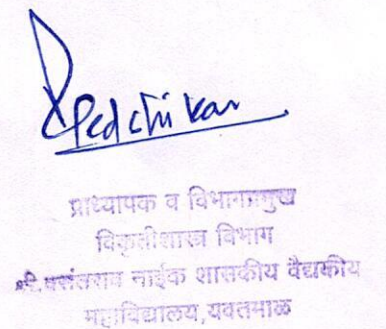 Pedchikar
प्राध्यापक व विभागप्रमुख
विकृतीशास्त्र विभाग
श्री.वसंतराव नाईक शासकीय वैद्यकीय
महाविद्यालय,यवतमाळ